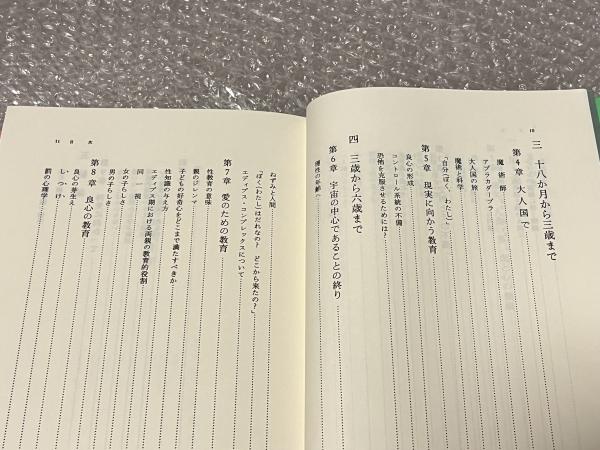 10
三 十八か月から三歳まで
第4章 大人国で
魔術師
アブラカダブラ
大人国の旅
魔術と科学
「自分（ぼく、わたし）」
第5章 現実に向かう教育
良心の形成
コントロール系統の不備
恐怖を克服させるためには?
四 三歳から六歳まで
第6章 宇宙の中心であることの終り
理性の年齢へ
11 目 次
ねずみと人間
「ぼく（わたし）はだれなの? どこから来たの?」
エディプス・コンプレックスについて
第7章 愛のための教育
性教育の意味
親のジレンマ
子どもの好奇心をどこまで満たすべきか
性知識の与え方
エディプス期における両親の教育的役割
同一視
女の子らしさ
男の子らしさ
第8章 良心の教育
良心の芽生え
しつけ
罰の心理学